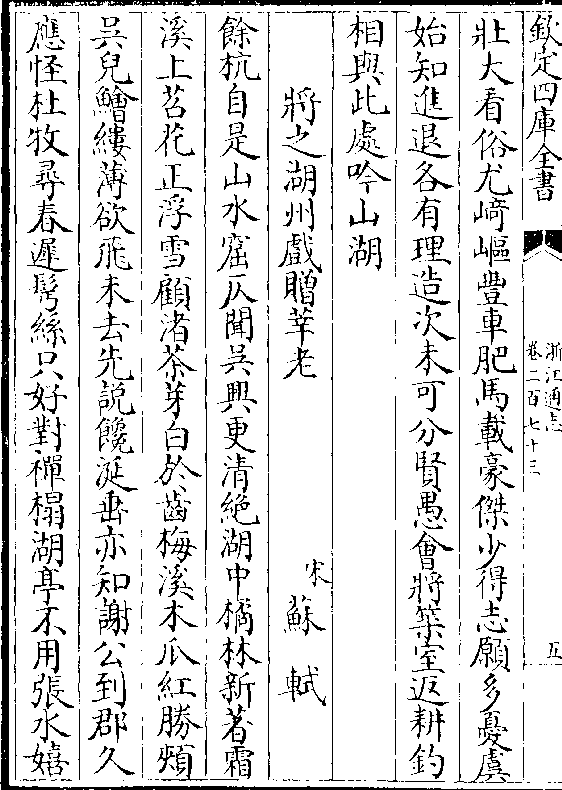 欽定四庫全書
浙江通志
卷二百七十三
五
壯大看俗尤﨑嶇豐車肥馬載豪傑少得志願多憂虞
始知進退各有理造次未可分賢愚會將築室返耕釣
相與此處吟山湖
將之湖州戲贈莘老
宋蘇軾
餘杭自是山水窟仄聞吳興更清絶湖中橘林新著霜
溪上苕花正浮雪顧渚茶芽白於齒梅溪木瓜紅勝頰
吳兒鱠縷薄欲飛未去先説饞涎垂亦知謝公到郡久
應怪杜牧尋春遲鬢絲只好對禪榻湖亭不用張水嬉